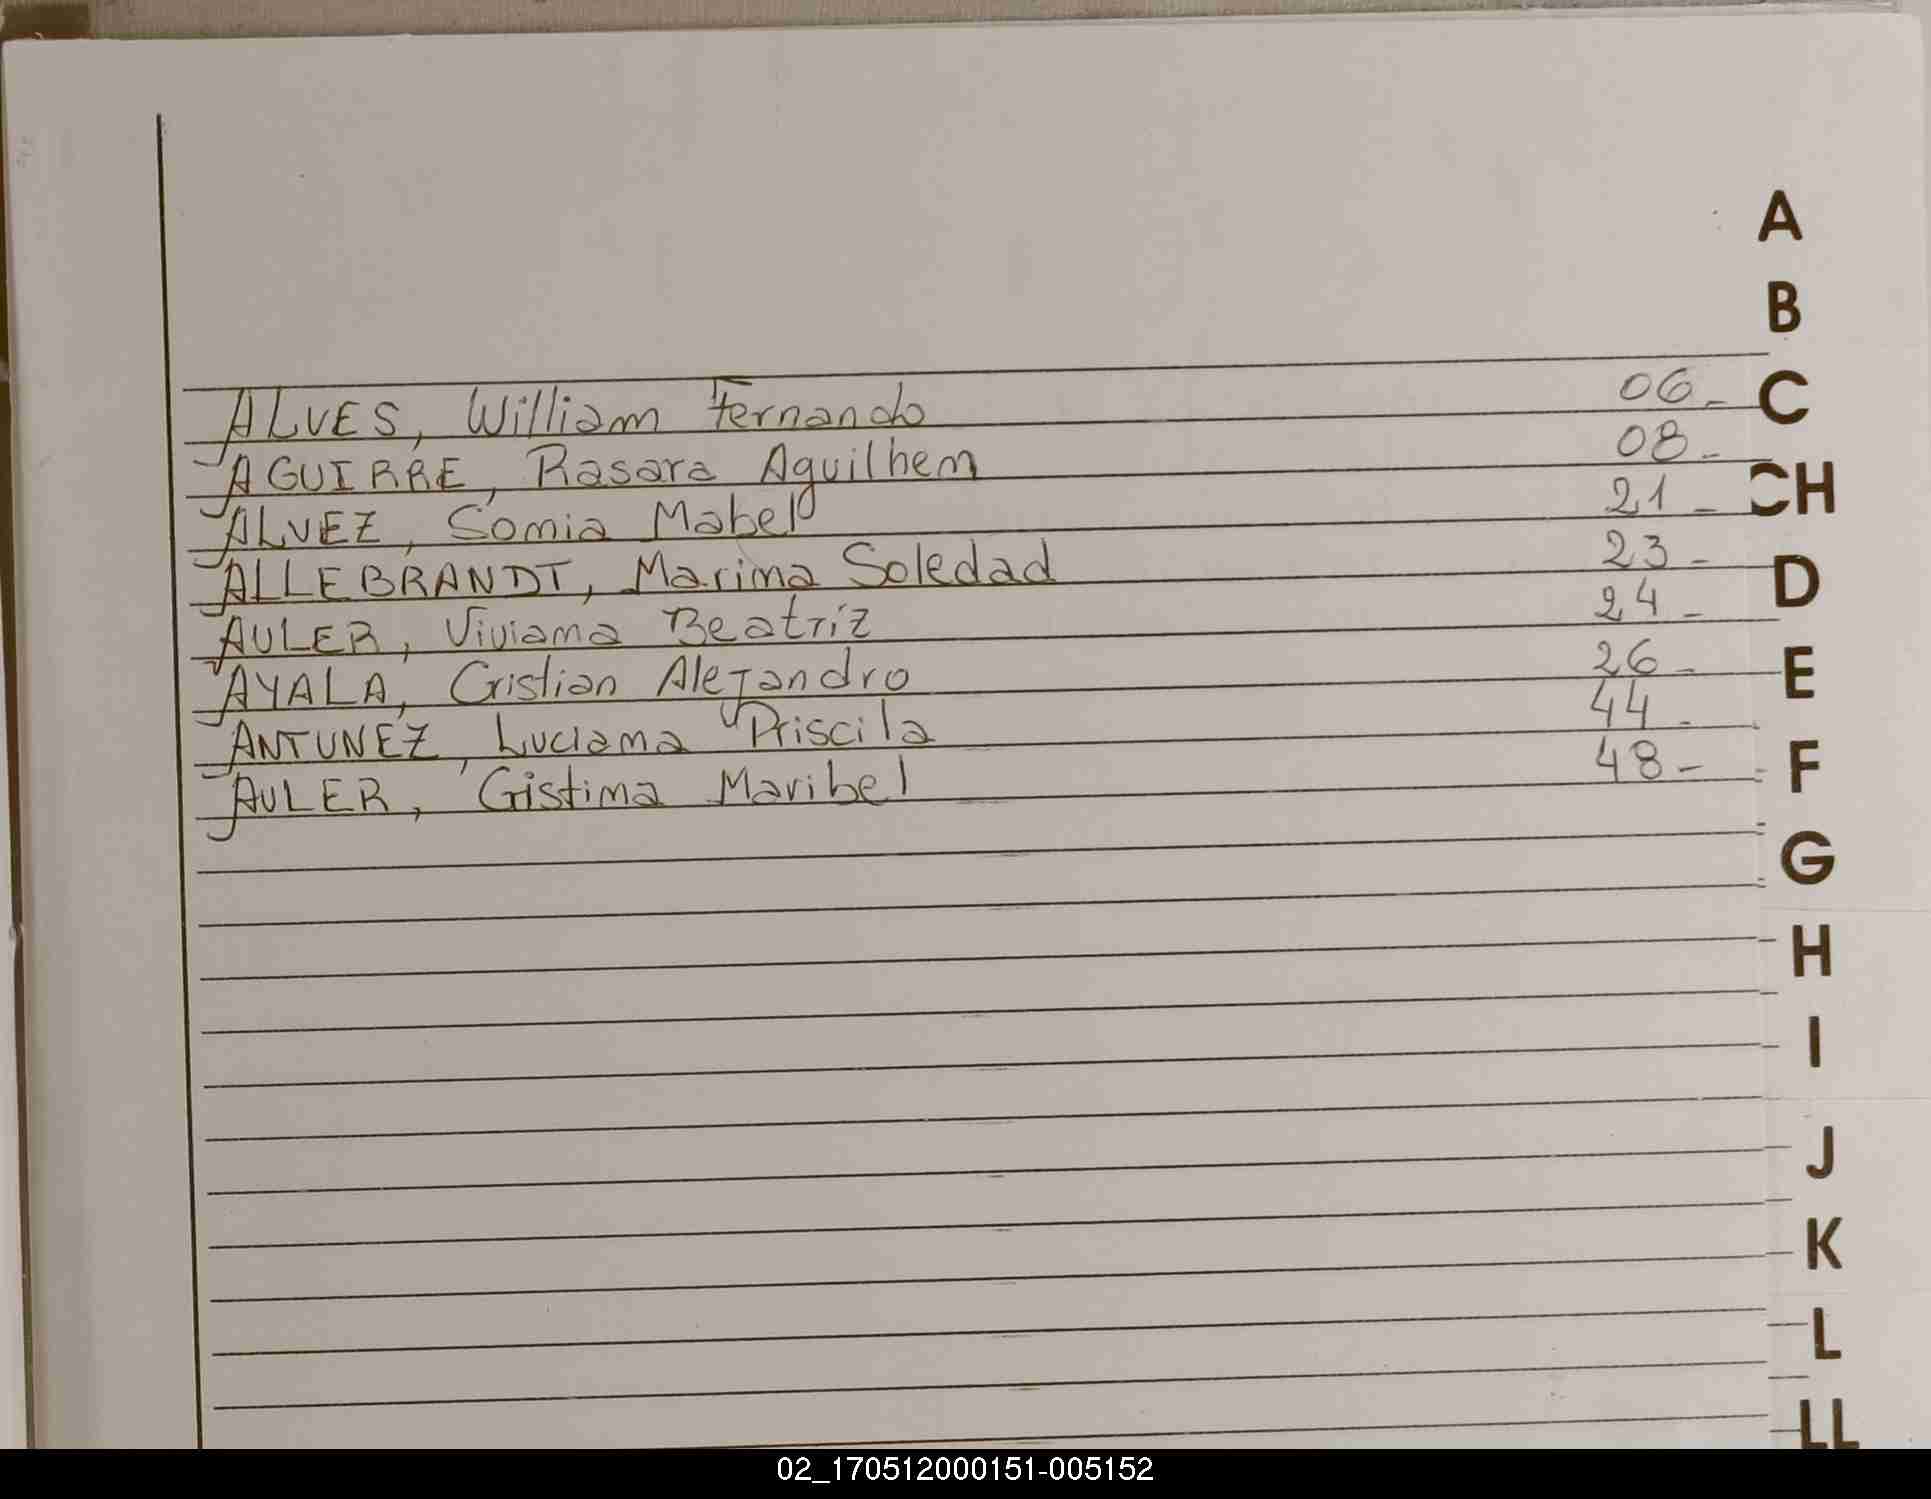 A
B
ALVES, William Fernando 06-
C
AGUIRRE, Rasara Aguilhem 08-
ALVEZ, Sonia Mabel 21-
CH
ALLEBRANDT, Marina Soledad 23-
D
AULER, Viviana Beatriz 24-
AYALA, Cristian Alejandro 26-
E
ANTUNEZ, Luciana Priscila 44-
AULER, Cistina Maribel 48-
F
G
H
I
J
K
L
LL
02_170512000151-005152